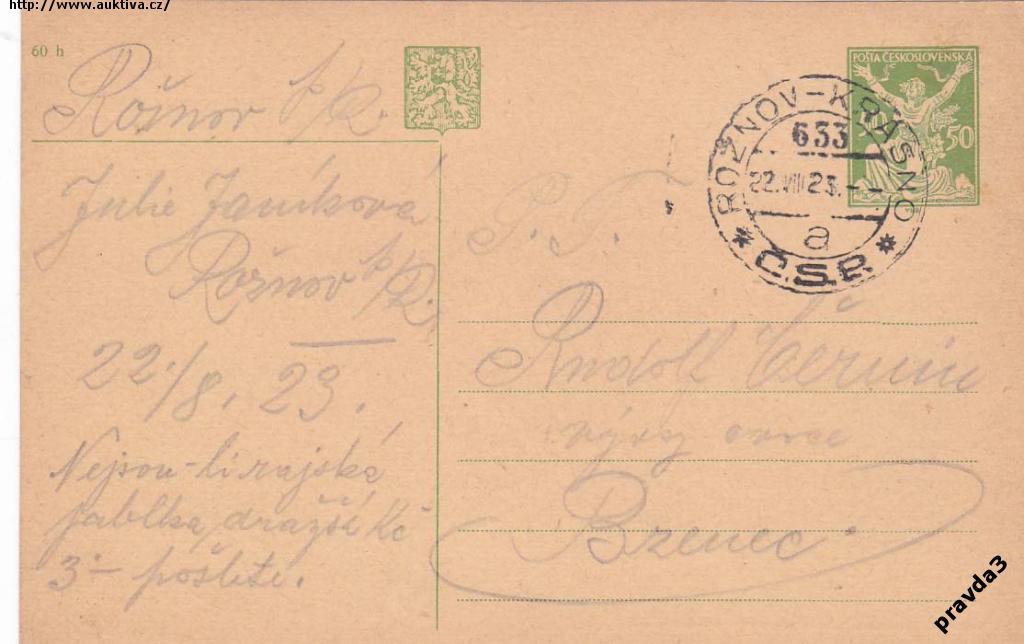 http://www.auktiva.cz/
60 h
Rožnov p/R.
POŠTA ČESKOSLOVENSKÁ
50
ROŽNOV-KRÁSNO
633
22.VIII 23.--
a
* Č.S.R. *
Julie Janíková
Rožnov p/R.
22./8. 23.
Nejsou-li rajská
jablka dražší Kč
3- pošlete.
P. T.
Rudolf Černín
vývoz ovoce
Bzenec.
pravda3